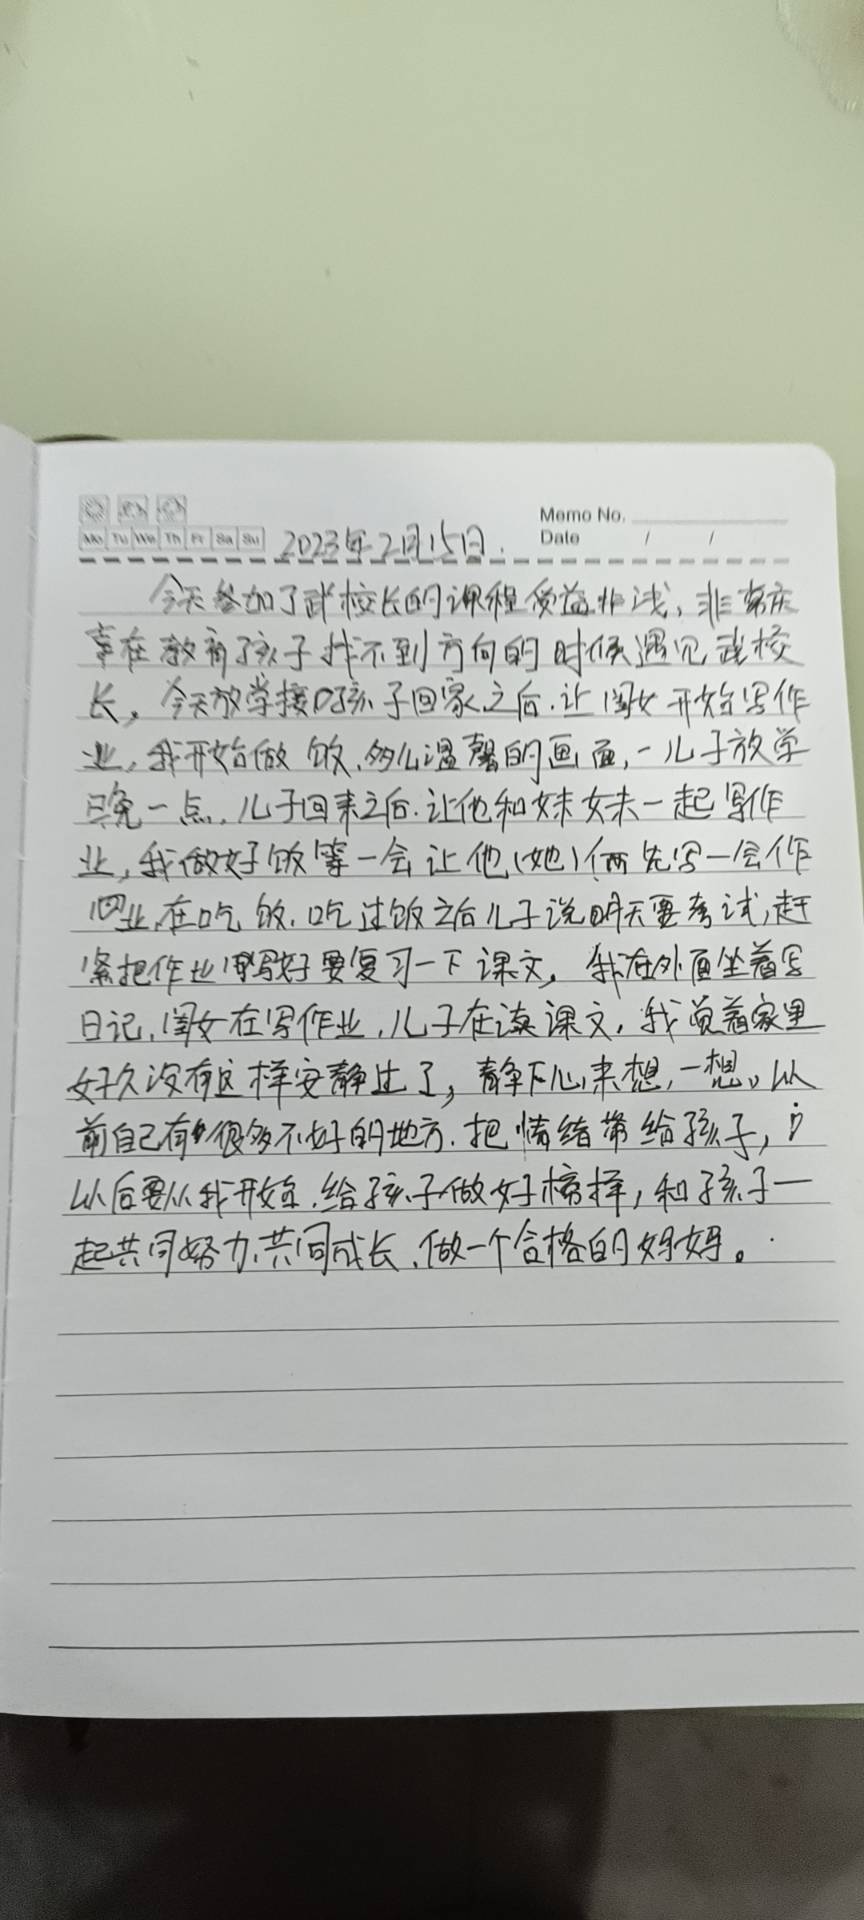 Memo No.
Mo Tu We Th Fr Sa Su 2023年2月15日. Date / /
今天参加了武校长的课程受益非浅,非常庆
幸在教育孩子找不到方向的时候遇见武校
长。今天放学接孩子回家之后.让闺女开始写作
业,我开始做饭,多么温馨的画面,儿子放学
晚一点.儿子回来之后.让他和妹妹一起写作
业,我做好饭等一会让他(她)俩先写一会作
业,在吃饭.吃过饭之后儿子说明天要考试,赶
紧把作业写好要复习一下课文,我在外面坐着写
日记,闺女在写作业,儿子在读课文,我觉着家里
好久没有这样安静过了,静下心来想一想,以
前自己有很多不好的地方.把情绪带给孩子,
以后要从我开始,给孩子做好榜样,和孩子一
起共同努力,共同成长,做一个合格的妈妈。